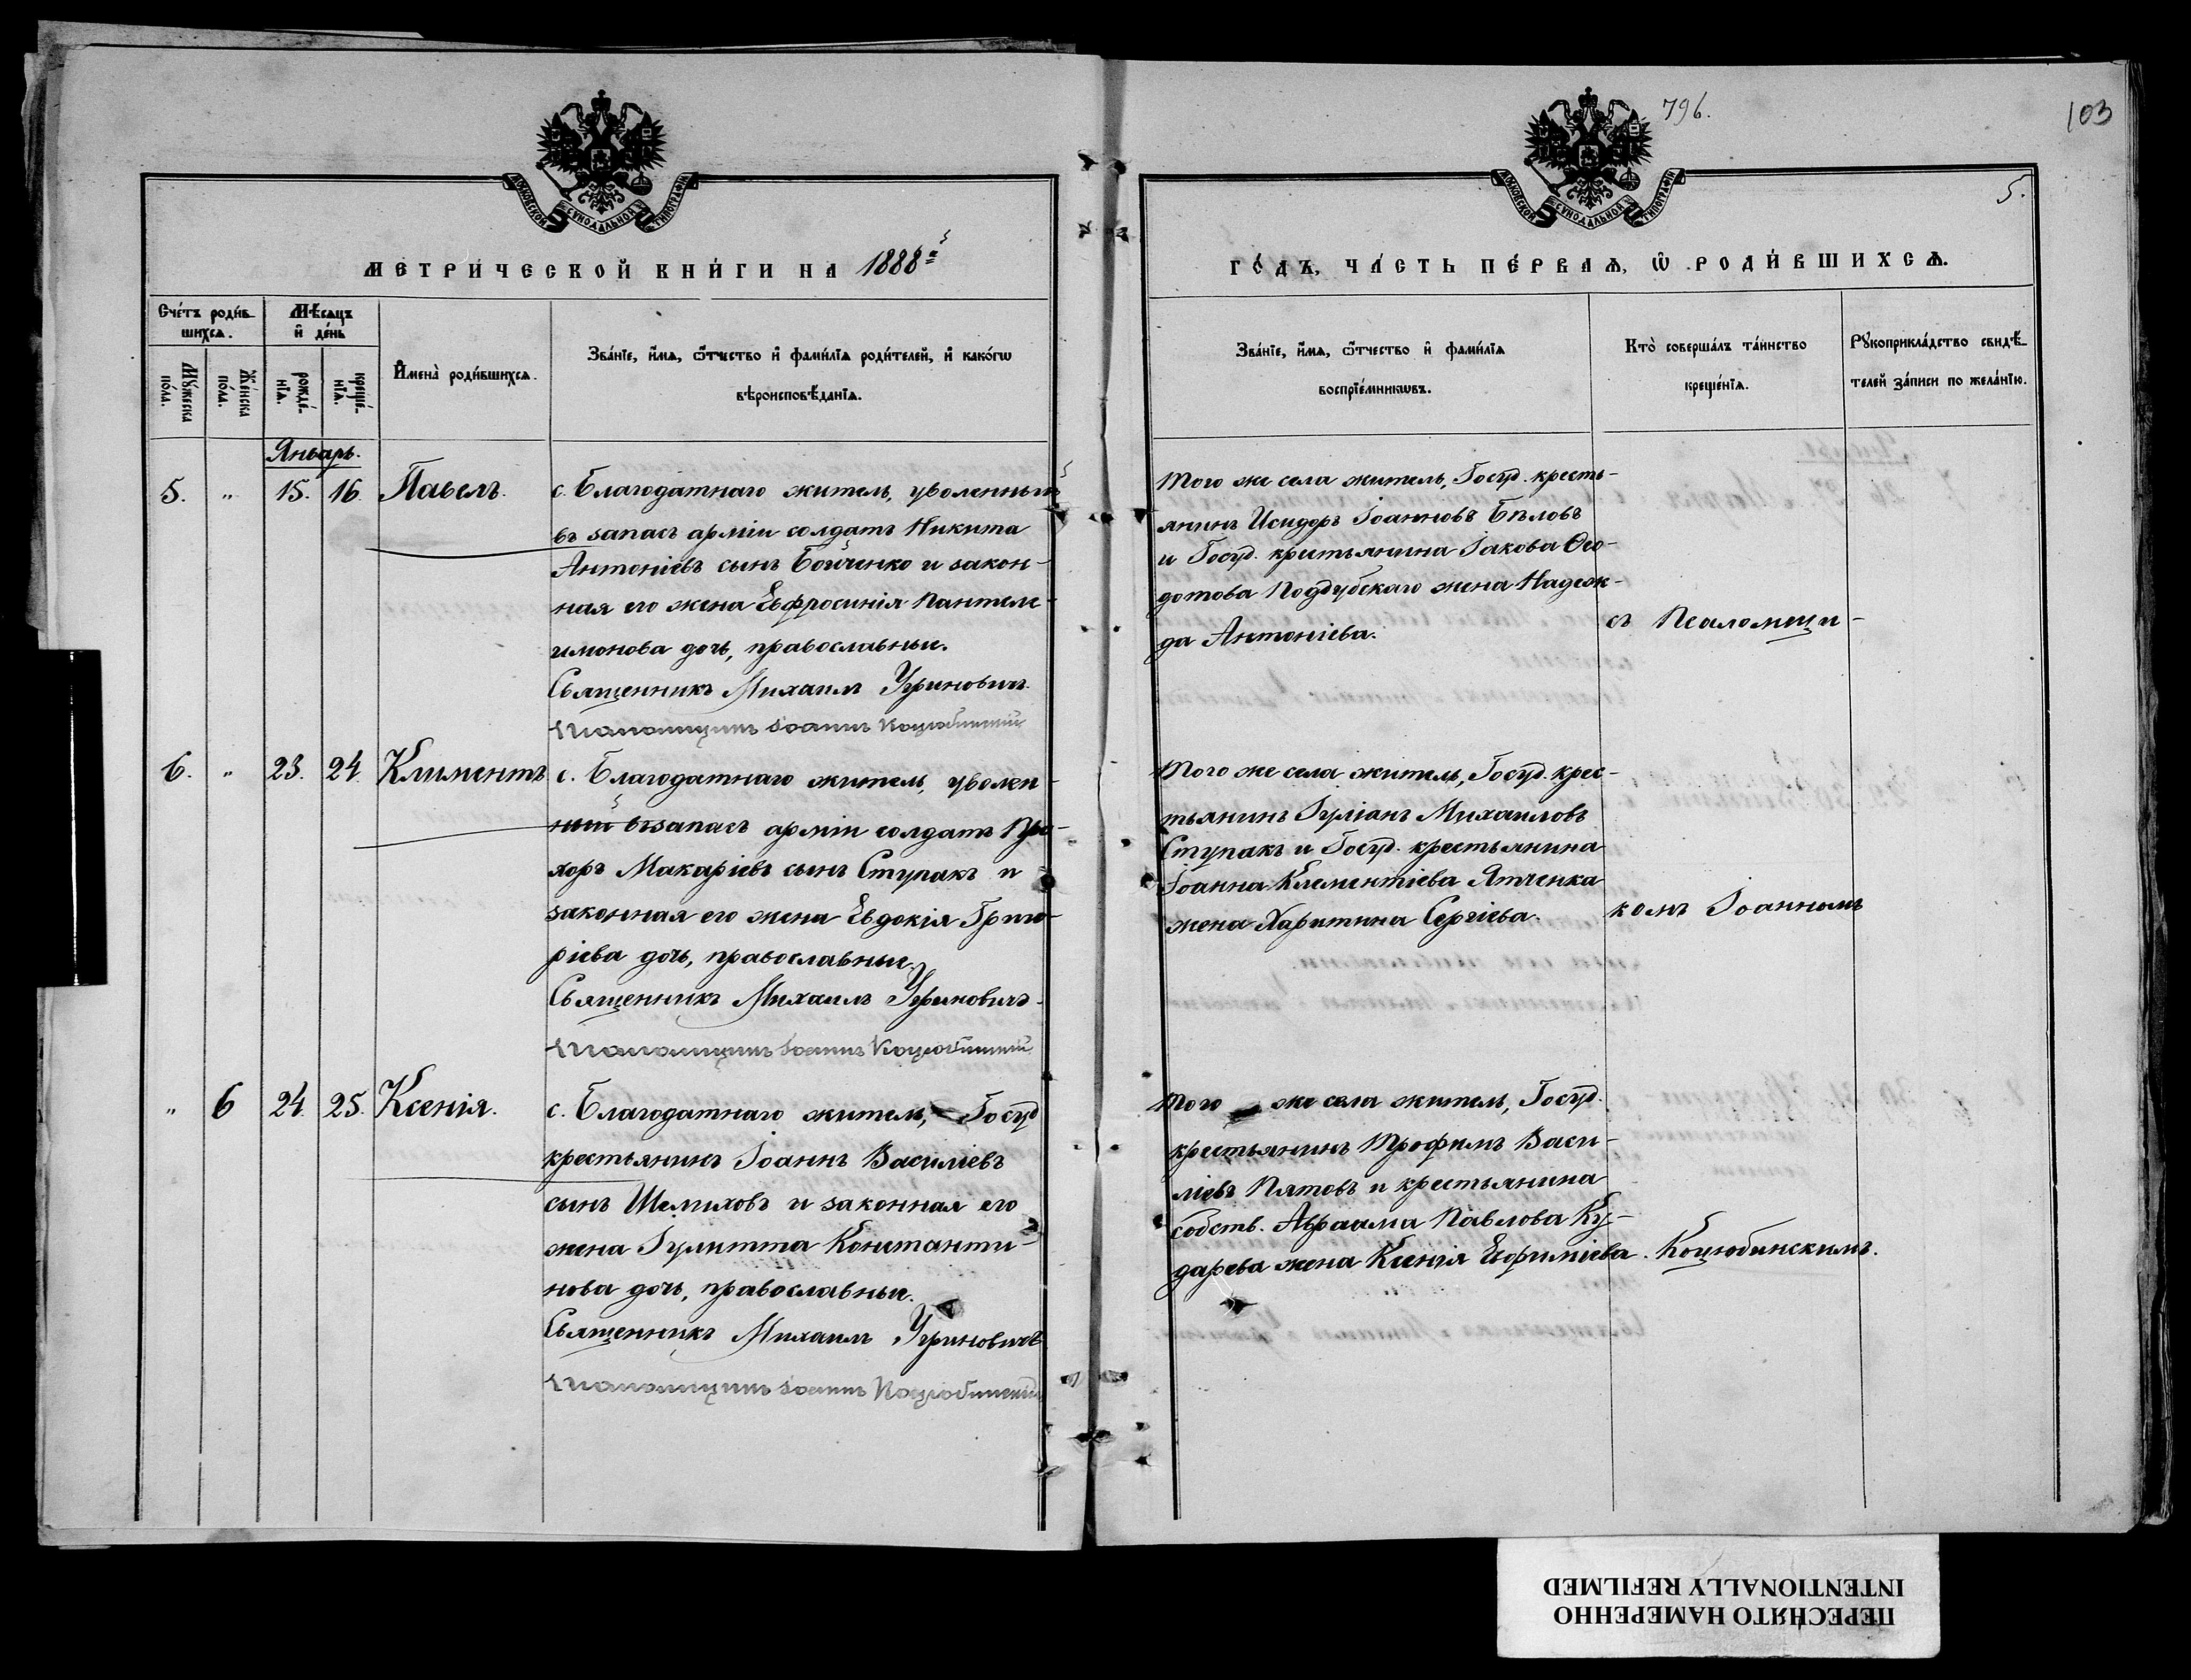 796.
103
5.
МОСКОВСКОЙ СѴНОДАЛЬНОЙ ТИПОГРАФІИ
МОСКОВСКОЙ СѴНОДАЛЬНОЙ ТИПОГРАФІИ
МЕТРИ́ЧЕСКОЙ КНИ́ГИ НА 1888й
ГО́ДЪ, ЧА́СТЬ ПЕ́РВАѦ, Ѡ РОДИ́ВШИХСѦ.
Сче́тъ роди́в-
шихсѧ.
Мѣ́сѧцъ
и҆ де́нь
Мꙋ́жеска
по́ла.
Же́нска
по́ла.
рожде́-
нїѧ.
креще́-
нїѧ.
И҆мена̀ роди́вшихсѧ.
Зва́нїе, и҆́мѧ, ѻ҆́тчество и҆ фами́лїѧ роди́телей, и҆ како́гѡ
вѣроисповѣ́данїѧ.
Зва́нїе, и҆́мѧ, ѻ҆́тчество и҆ фами́лїѧ
воспрїе́мникѡвъ.
Кто̀ соверша́лъ та́инство
креще́нїѧ.
Рꙋкоприкла́дство свидѣ́-
телей за́писи по жела́нїю.
Январь.
5. " 15. 16. Павелъ.
с. Благодатнаго житель, уволенный
въ запасъ арміи солдатъ Никита
Антоніевъ сынъ Бойченко и закон-
ная его жена Евфросинія Пантеле-
имонова дочь, православные.
Священникъ Михаилъ Угриновичъ.
Псаломщикъ Іоаннъ Коцюбинскій
Того же села житель, Госуд. кресть-
янинъ Исидоръ Іоанновъ Бѣловъ
и Госуд. крестьянина Іакова Ѳео-
дотова Поддубскаго жена Надеж-
да Антоніева.
съ Псаломщи-
6. " 23. 24. Климентъ
с. Благодатнаго житель, уволен-
ный въ запасъ арміи солдатъ Про-
хоръ Макаріевъ сынъ Ступакъ и
законная его жена Евдокія Григо-
ріева дочь, православные.
Священникъ Михаилъ Угриновичъ.
Псаломщикъ Іоаннъ Коцюбинскій
Того же села житель, Госуд. крес-
тьянинъ Іуліанъ Михаиловъ
Ступакъ и Госуд. крестьянина
Іоанна Клементіева Ятченка
жена Харитина Сергіева.
комъ Іоанномъ
" 6 24. 25. Ксенія.
с. Благодатнаго житель, Госуд
крестьянинъ Іоаннъ Василіевъ
сынъ Шелиховъ и законная его
жена Іулитта Константи-
нова дочь, православные.
Священникъ Михаилъ Угриновичъ
Псаломщикъ Іоаннъ Коцюбинскій
Того же села житель, Госуд.
крестьянинъ Трофимъ Васи-
ліевъ Пятовъ и крестьянина
собств. Авраама Павлова Ку-
дарева жена Ксенія Евфиміева.
Коцюбинскимъ.
ПЕРЕСНЯТО НАМЕРЕННО
INTENTIONALLY REFILMED